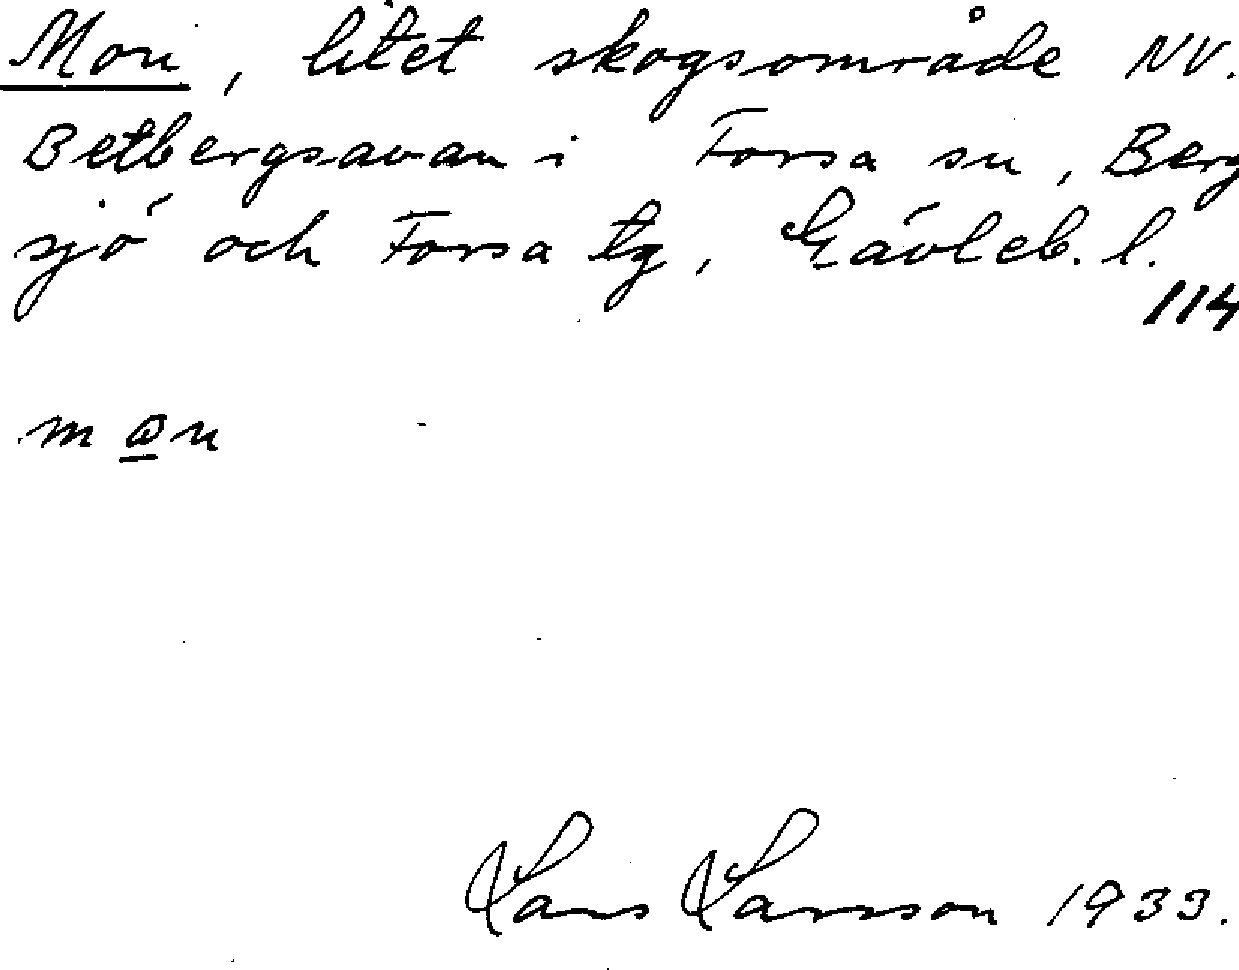 Mon, litet skogsområde NV.
Betbergsavan i Forsa sn, Berg
sjö och Forsa tg, Gävleb. l.
114
Lars Larsson 1933.